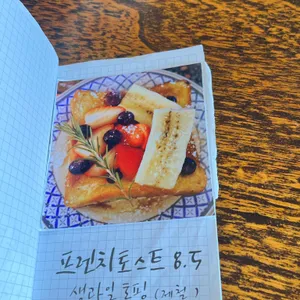 프렌치토스트 8.5
생과일 토핑 (제철)